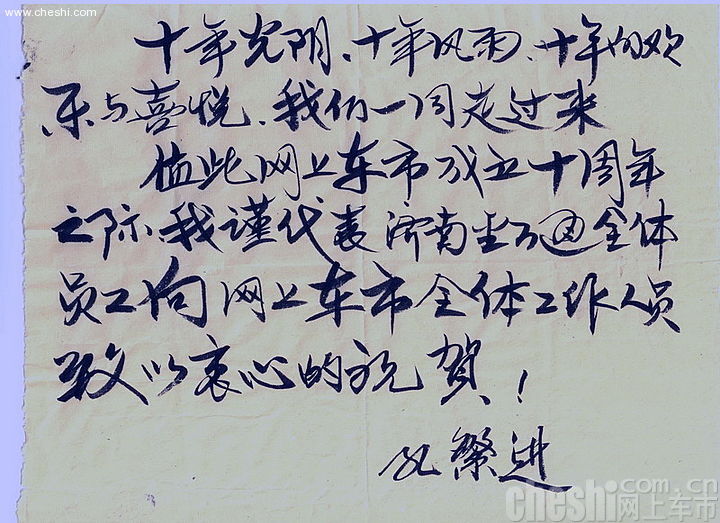 www.cheshi.com
十年光阴、十年风雨、十年的欢
乐与喜悦、我们一同走过来
值此网上车市成立十周年
之际、我谨代表济南全体
员工向网上车市全体工作人员
致以衷心的祝贺！
孔繁进
cheshi.com.cn
网上车市